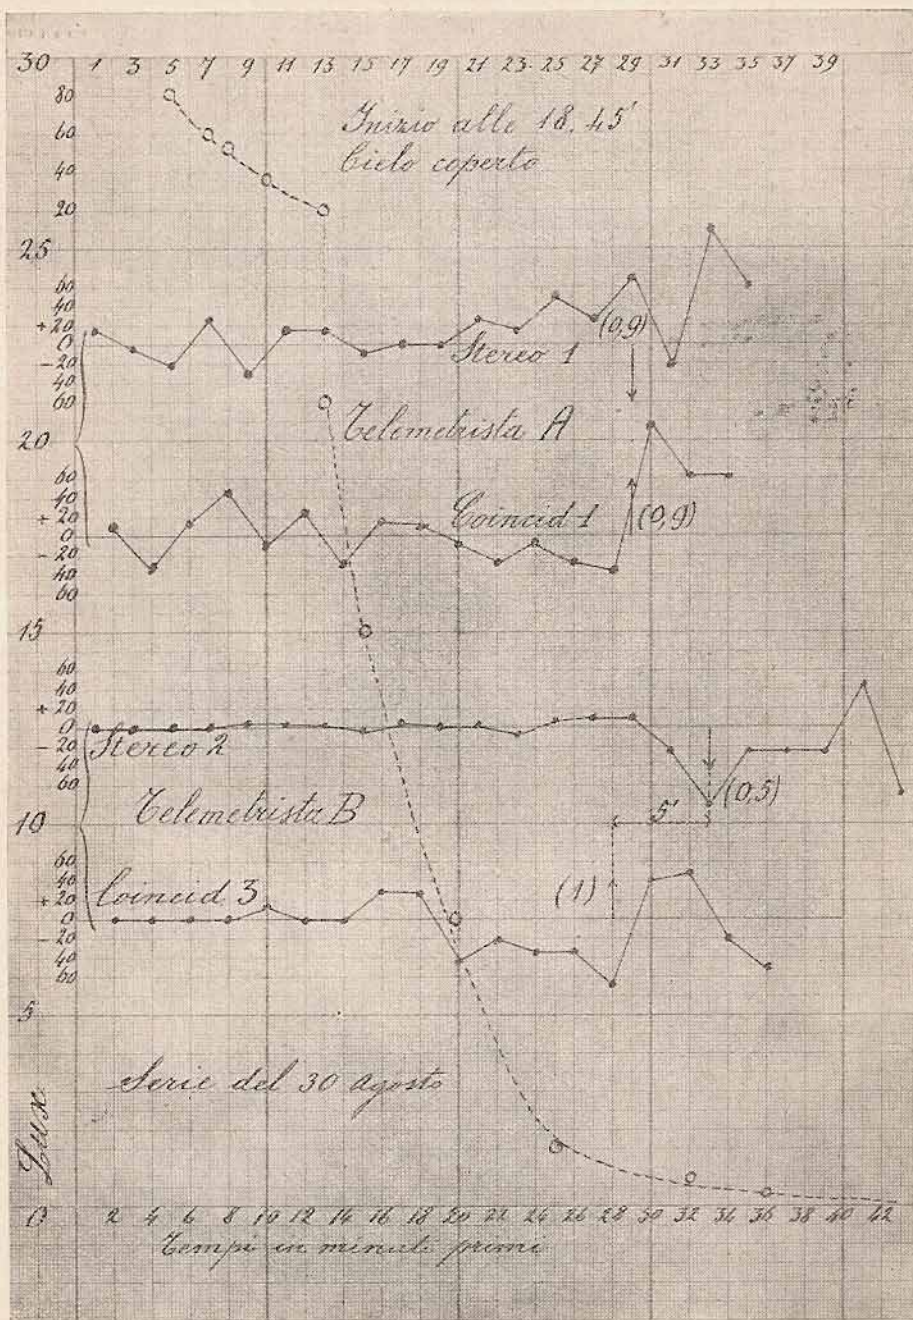 30 1 3 5 7 9 11 13 15 17 19 21 23 25 27 29 31 33 35 37 39
80
60
40
20
Inizio alle 18.45'
Cielo coperto
25
60
40
+20
0
-20
40
60
(0,9)
Stereo 1
Telemetrista A
20
60
40
+20
0
-20
40
60
Coincid 1
(0,9)
15
60
40
+20
0
-20
40
60
Stereo 2
(0,5)
5'
Telemetrista B
10
60
40
+20
0
-20
40
60
Coincid 3
(1)
5
Serie del 30 agosto
Lux
0 2 4 6 8 10 12 14 16 18 20 22 24 26 28 30 32 34 36 38 40 42
Tempi in minuti primi